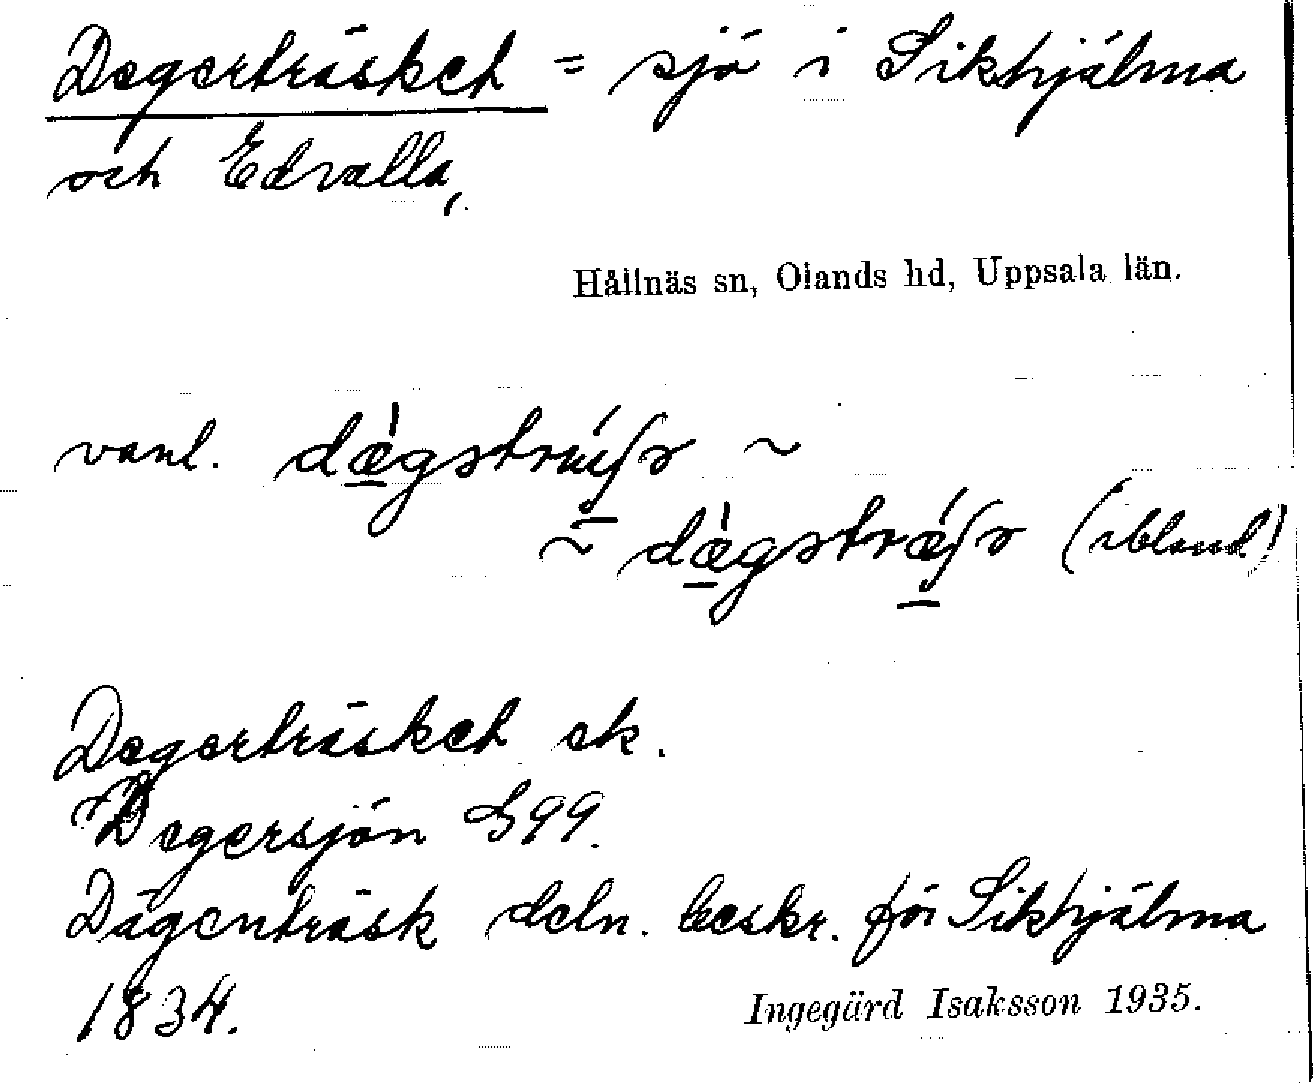 Degerträsket = sjö i Sikhjälma
och Edvalla,
Hållnäs sn, Olands hd, Uppsala län.
vanl. dæ̀gstrǽſə ~
~ dæ̀gstrǽſə (ibland)
Degerträsket ek.
Degersjön S 99.
Dägerträsk deln. beskr. för Sikhjälma
1834.
Ingegärd Isaksson 1935.